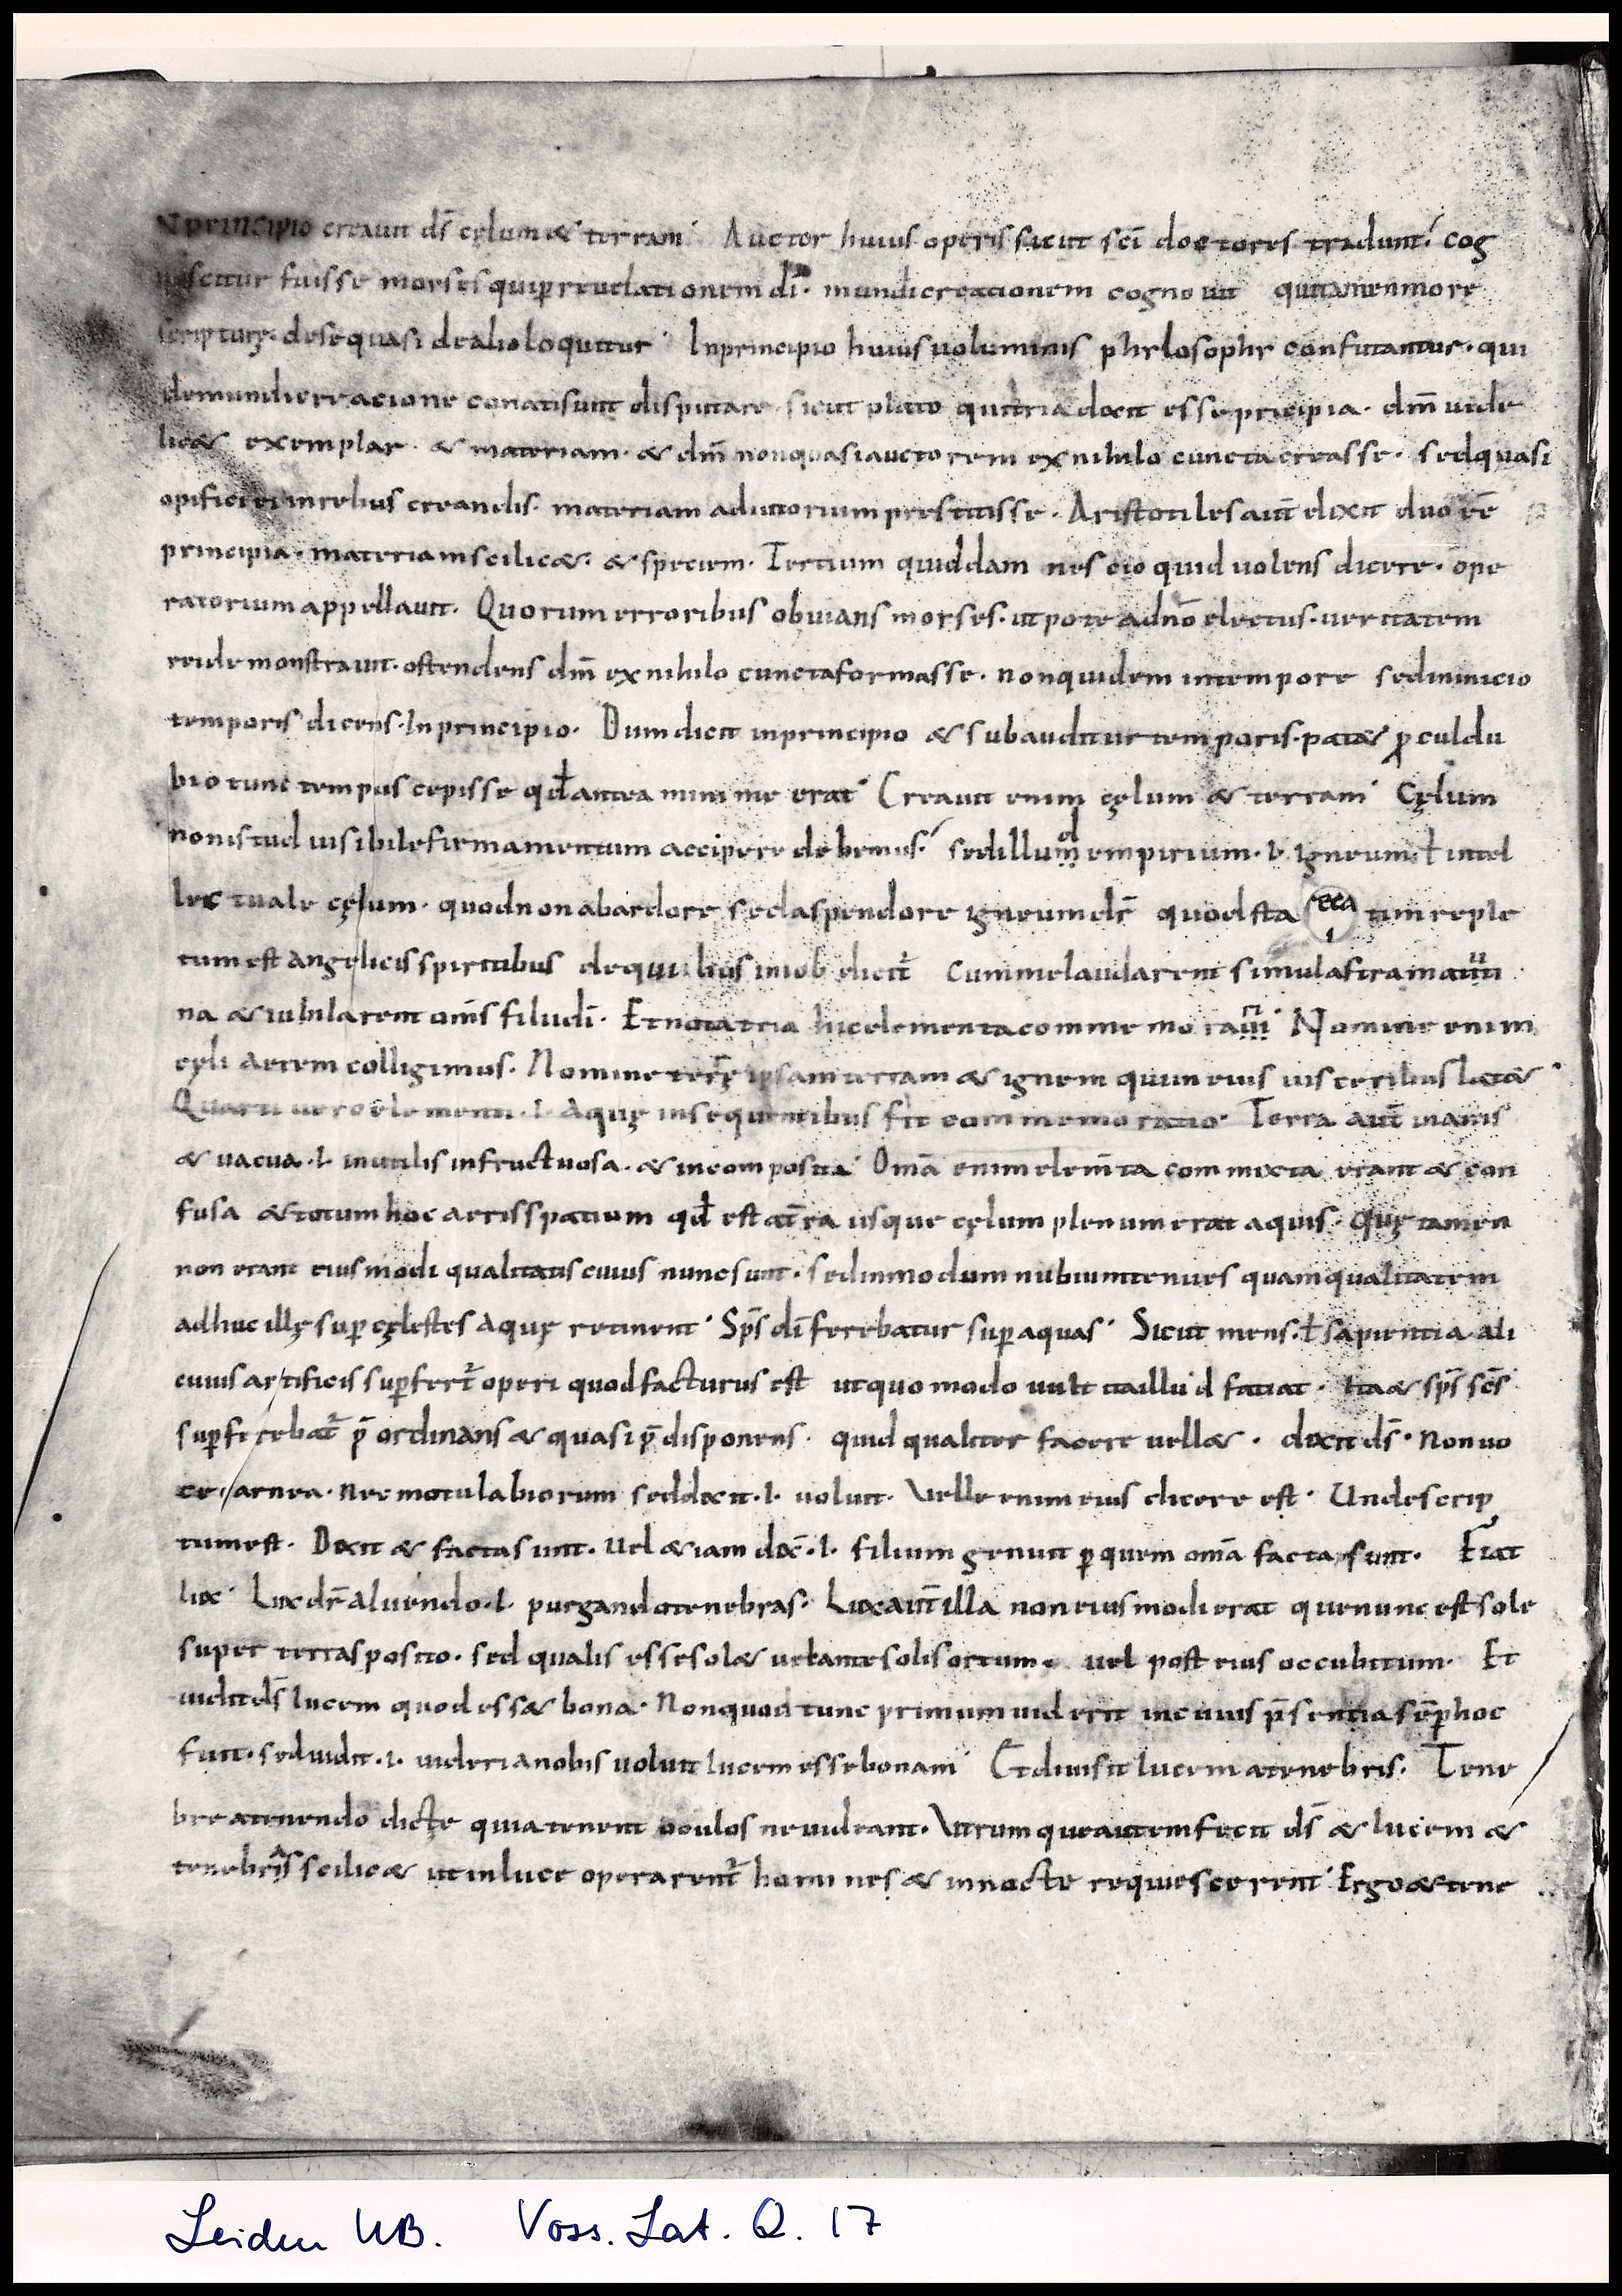 N principio creauit ds̄ cęlum & terram. Auctor huius operis sicut sc̄i doctores tradunt. cog
noscitur fuisse moyses qui ꝑ reuelationem dī. mundi creationem cognouit qui tamen more
scripturę. de se quasi de alio loquitur. In principio huius uoluminis phylosophy confutantur. qui
de mundi erracione conati sunt disputare. sicut plato qui tria dixit esse pricipia. dm̄ uide
lic& exemplar. & materiam. & dm̄ non quasi auctorem ex nihilo cuncta creasse. sed quasi
opifici ei in rebus creandis. materiam adiutorium prestitisse. Aristotiles aut̄ dixit duo eē
principia. materiam scilic&. & speciem. Tertium quiddam nescio quid uolens dicere. ope
ratorium appellauit. Quorum erroribus obuians moyses. utpote a dn̄o electus. ueritatem
rei demonstrauit. ostendens dm̄ ex nihilo cuncta formasse. non quidem in tempore sed in inicio
temporis dicens. In principio. Dum dicit in principio & subauditur temporis. pat& ꝓculdu
bio tunc tempus cepisse qđ antea minime erat. Creauit enim cęlum & terram. Cęlum
non istud uisibile firmamentum accipere debemus. sed illum empirium. i. igneum ł intel
lectuale cęlum. quod non ab ardore sed a spendore igneum dr̄ quod statim reple
tum est angelicis spiritibus de quibus in iob dicit̄ Cum me laudarent simul astra matuti
na & iubilarent om̄s filii dī. Et nota tria hic elementa commemorari. Nomine enim
cęli aerem colligimus. Nomine terrę ipsam terram & ignem qui in eius uisceribus lat&.
Quarti uero elementi. i. aquę in sequentibus fit commemoratio. Terra aut̄ inanis
& uacua. i. inutilis infructuosa. & incomposita. Om̄a enim elem̄ta commixta erant & con
fusa & totum hoc aeris spatium qđ est a t̄ra usque cęlum plenum erat aquis. quę tamen
non erant eiusmodi qualitatis cuius nunc sunt. sed in modum nubium tenues quam qualitatem
adhuc illę suꝑcęlestes aquę retinent. Sps̄ dī ferebatur suꝑ aquas. Sicut mens. ł sapientia ali
cuius artificis suꝑfert̄ operi quod facturus est ut quomodo uult ita illud faciat. Ita & sps̄ sc̄s
suꝑferebat̄ p̄ordinans & quasi p̄disponens. quid qualiter facere uell&. dixit ds̄. Non uo
ce carnea. nec motu labiorum sed dixit. i. uoluit. Velle enim eius dicere est. Unde scrip
tum est. Dixit & facta sunt. uel & iam dix̄. i. filium genuit ꝑ quem om̄a facta sunt. Fiat
lux. Lux dr̄ a luendo. i. purgando tenebras. Lux aut̄ illa non eiusmodi erat que nunc est sole
super terras posito. sed qualis esse sol& uel ante solis ortum. uel post eius occubitum. Et
uidit ds̄ lucem quod ess& bona. Non quod tunc primum uiderit in cuius p̄sentia sēꝑ hoc
fuit. sed uidit. i. uideri a nobis uoluit lucem esse bonam. Et diuisit lucem a tenebris. Tene
bre a tenendo dictę quia tenent oculos ne uideant. Vtrumque autem fecit ds̄ & lucem &
tenebras scilic& ut in luce operarent̄ homines & in nocte requiescerent. Ergo & tene
Leiden UB. Voss. Lat. Q. 17